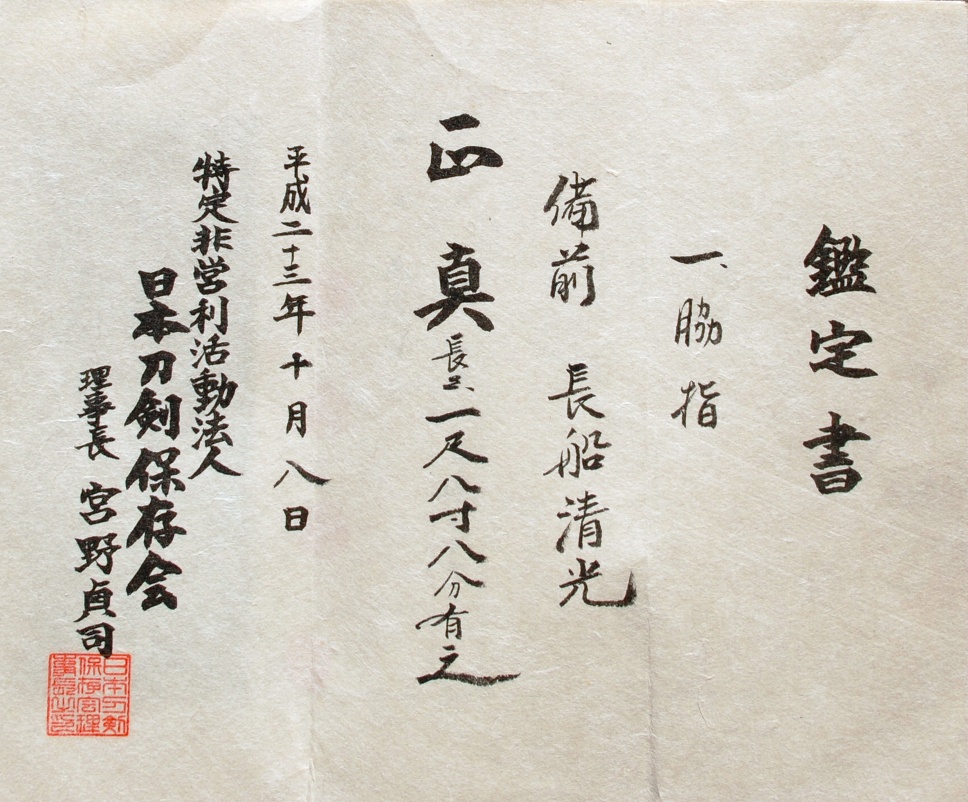 鑑定書
一、脇指
備前 長船清光
正真 長サ、一尺八寸八分有之
平成二十三年十月八日
特定非営利活動法人
日本刀剣保存会
理事長 宮野貞司
日本刀剣
保存会理
事長之印